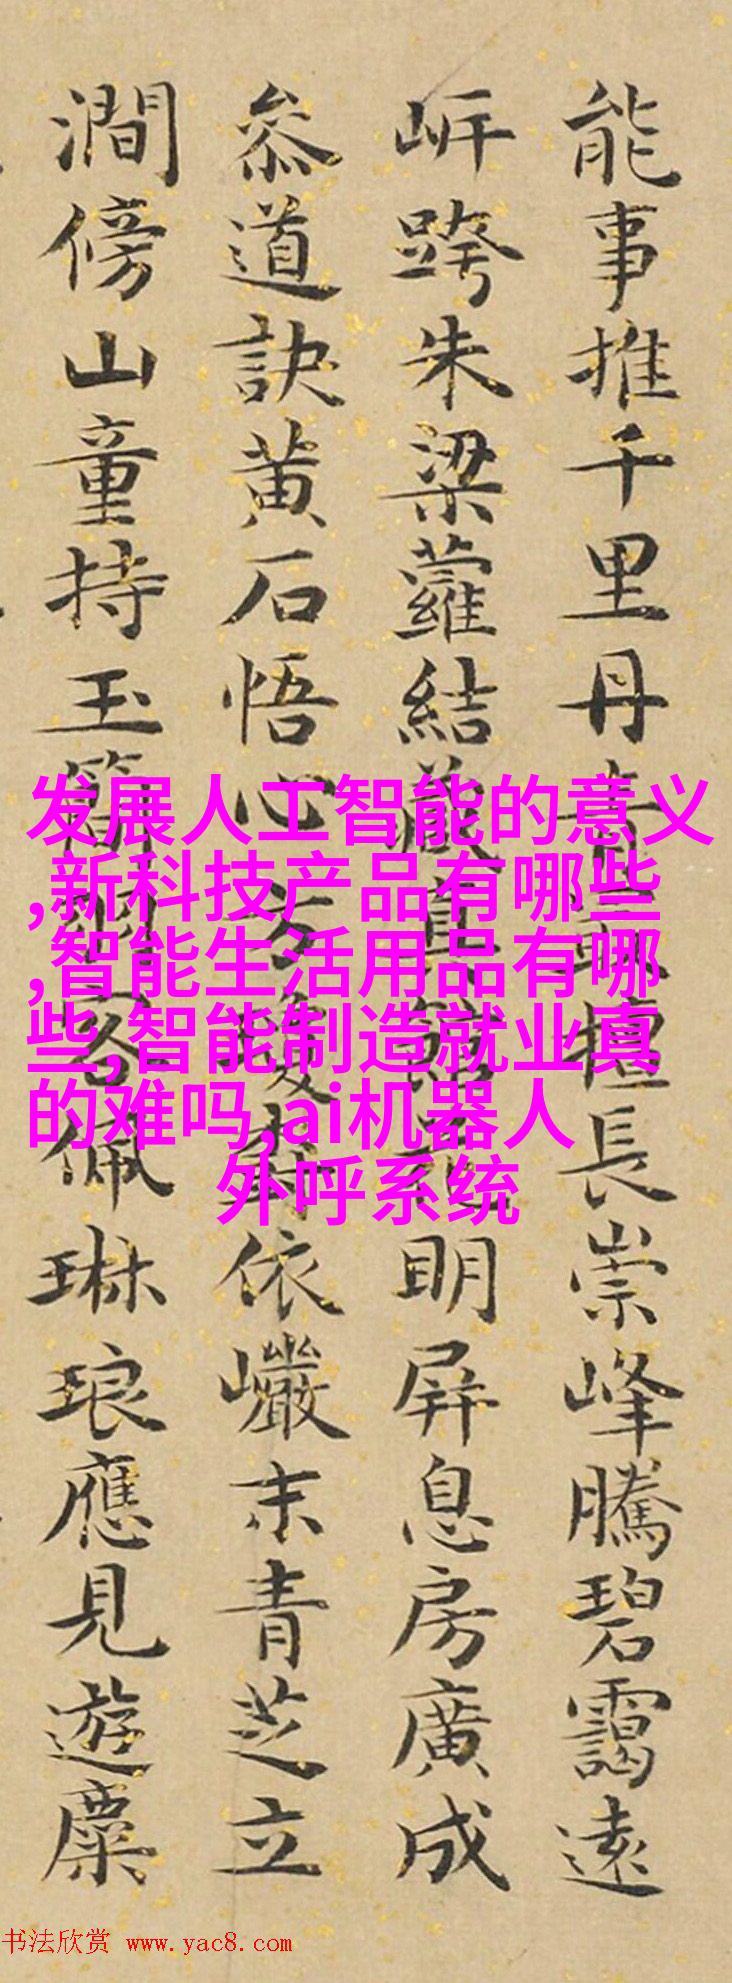 能事推千里丹青擅長崇峰騰碧靄遠
岍跨朱梁蘿結藏真館明屏息房廣成
叅道訣黃石悟心方依巘末青芝立
澗傍山童持玉簡客佩琳琅應見遊麋
发展人工智能的意义
,新科技产品有哪些
,智能生活用品有哪
些,智能制造就业真
的难吗,ai机器人
外呼系统
书法欣赏 www.yac8.com